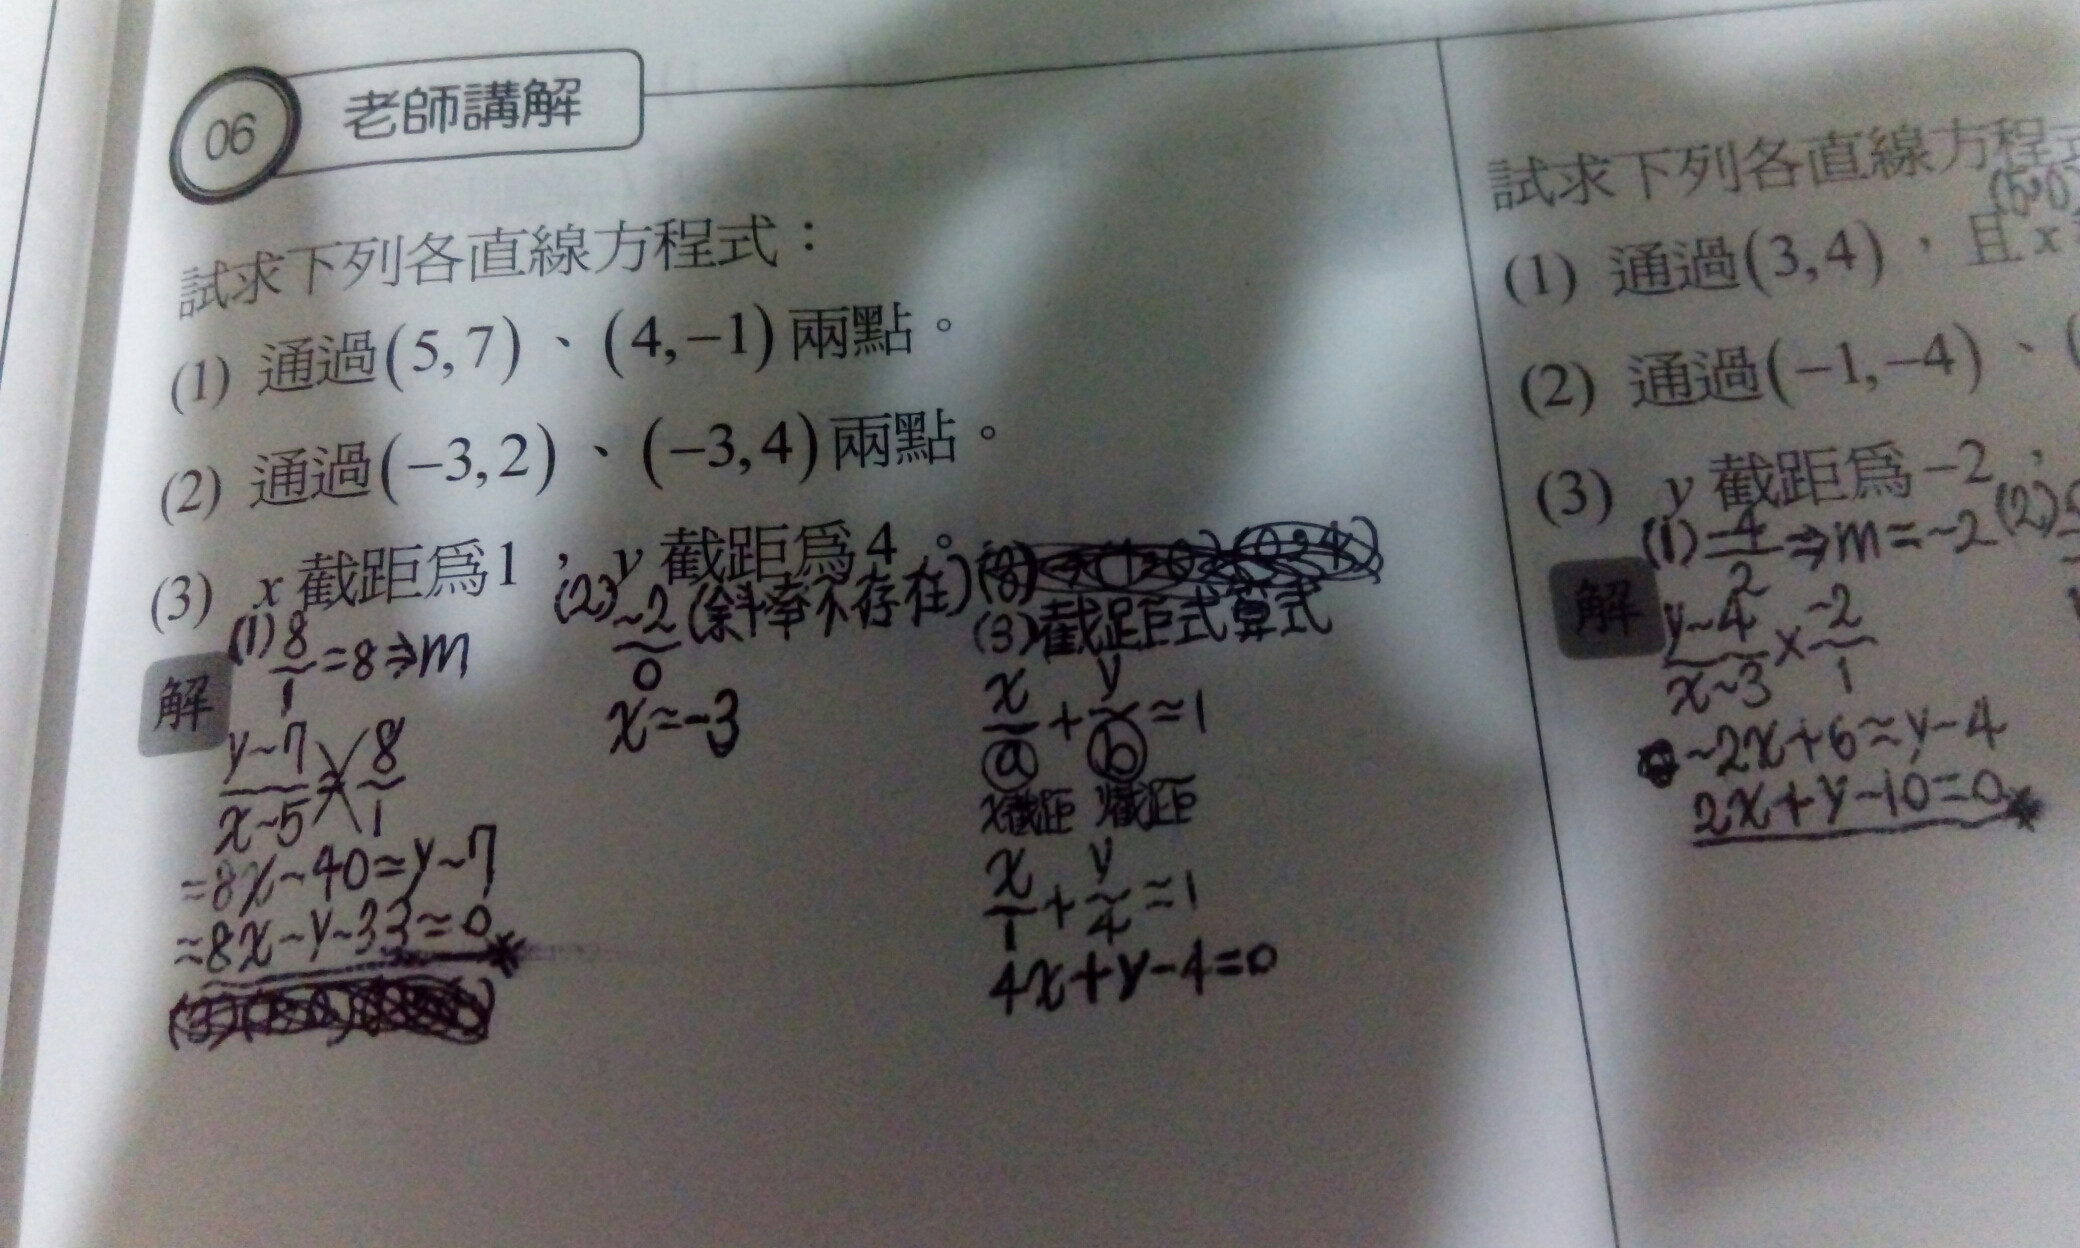 06 老師講解
試求下列各直線方程式：
(1) 通過(5,7)、(4,−1)兩點。
(2) 通過(−3,2)、(−3,4)兩點。
(3) x截距為1，y截距為4。
解
(1) 8/1 = 8 ⇒ m
y-7/x-5 = 8/1
=8x-40=y-7
=8x-y-33=0
(2) -2/0 (斜率不存在)
x=-3
(3)截距式算式
x/a + y/b = 1
x截距 y截距
x/1 + y/4 = 1
4x+y-4=0
試求下列各直線方程式
(5,0)
(1) 通過(3,4)，且x
(2) 通過(−1,−4)、(
(3) y截距為−2，
解
(1) -4/2 ⇒ m=-2
(2)
y-4/x-3 × -2/1
-2x+6=y-4
2x+y-10=0